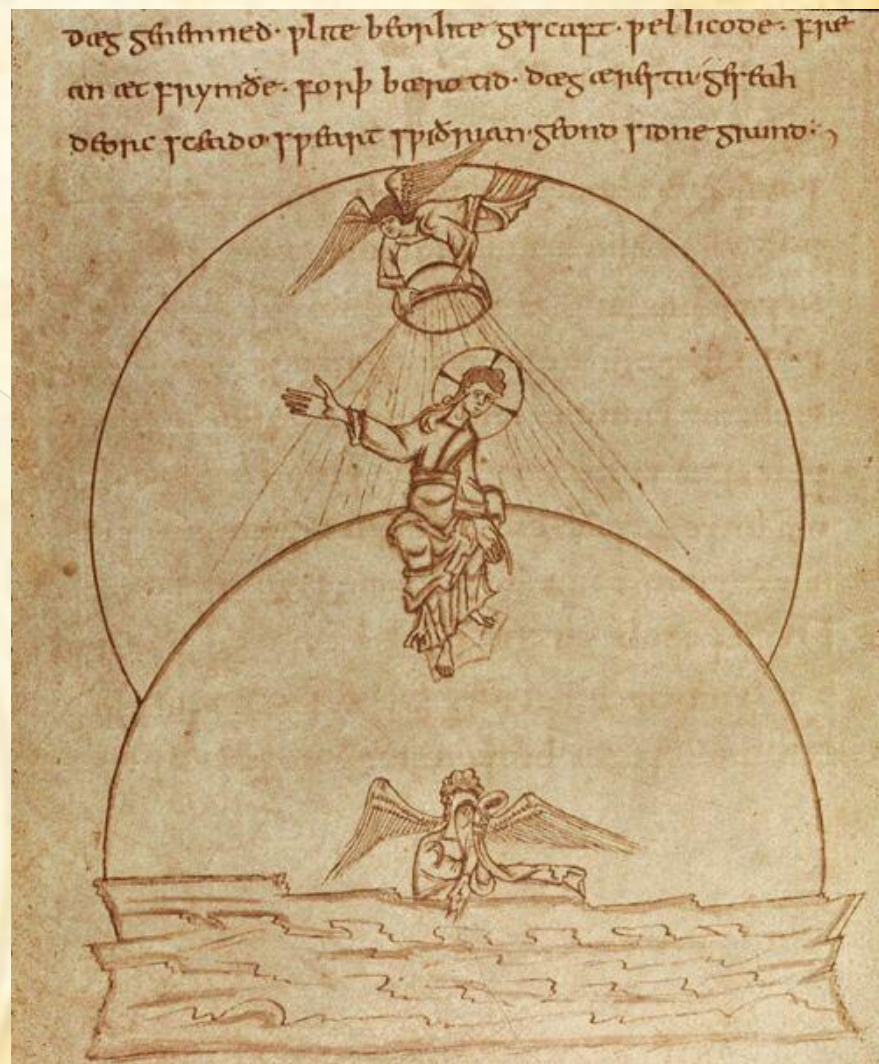 dæg genemned · ƿlite beorhte gesceaft · ƿel licode · frean
an æt frymðe · forþ bæro tid · dæg æresta · geseah
deorc sceado sƿeart sƿiðrian · geond sidne grund ·